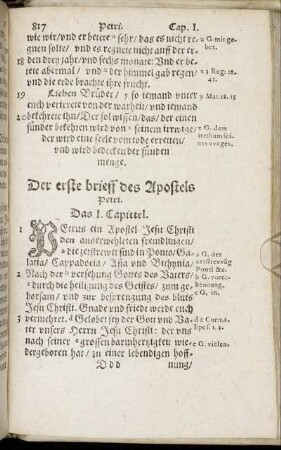 817 Petri. Cap. I.
wie wir/ vnd er betete * sehr/ das es nicht re
gnen solte/ vnd es regnete nicht auff der er-
18 den drey jahr/ vnd sechs monate: Vnd er be-
tete abermal/ vnd * der himmel gab regen/
vnd die erde brachte ihre frucht.
19 Lieben Brüder/ * so jemand vnter
euch verirrete von der warheit/ vnd jemand
20 bekehrete ihn/ Der sol wissen/ das/ der einen
sünder bekehren wird von * seinem irrwige/
der wird eine seele vom tode erretten/
vnd wird bedecken der sünden
menge.
* G. mit ge-
bet.
* 1 Reg: 18.
41.
* Mat. 18. 15
* G. dem
irrethum sei-
nes weges.
Der erste brieff des Apostels
Petri.
Das I. Capittel.
1 PEtrus ein Apostel Jesu Christi
den auserwehleten frembdlingen/
* die zestrewet sind in Ponto/ Ga-
latia/ Cappadocia/ Asia vnd Bithynia/
2 Nach der b versehung Gottes des Vaters/
c durch die heiligung des Geistes/ zum ge-
horsam/ vnd zur besprengung des bluts
Jesu Christi. Gnade vnd friede werde euch
3 vermehret. d Gelobet sey der Gott vnd Va-
ter vnsers Herrn Jesu Christi: der vns
nach seiner e grossen barmhertzigkeit wie-
dergeboren hat/ zu einer lebendigen hoff-
a G. der
zerstrewūg
Ponti &c.
b G. vorer-
kennung.
c G. in.
e G. vielen.
D d d nung/